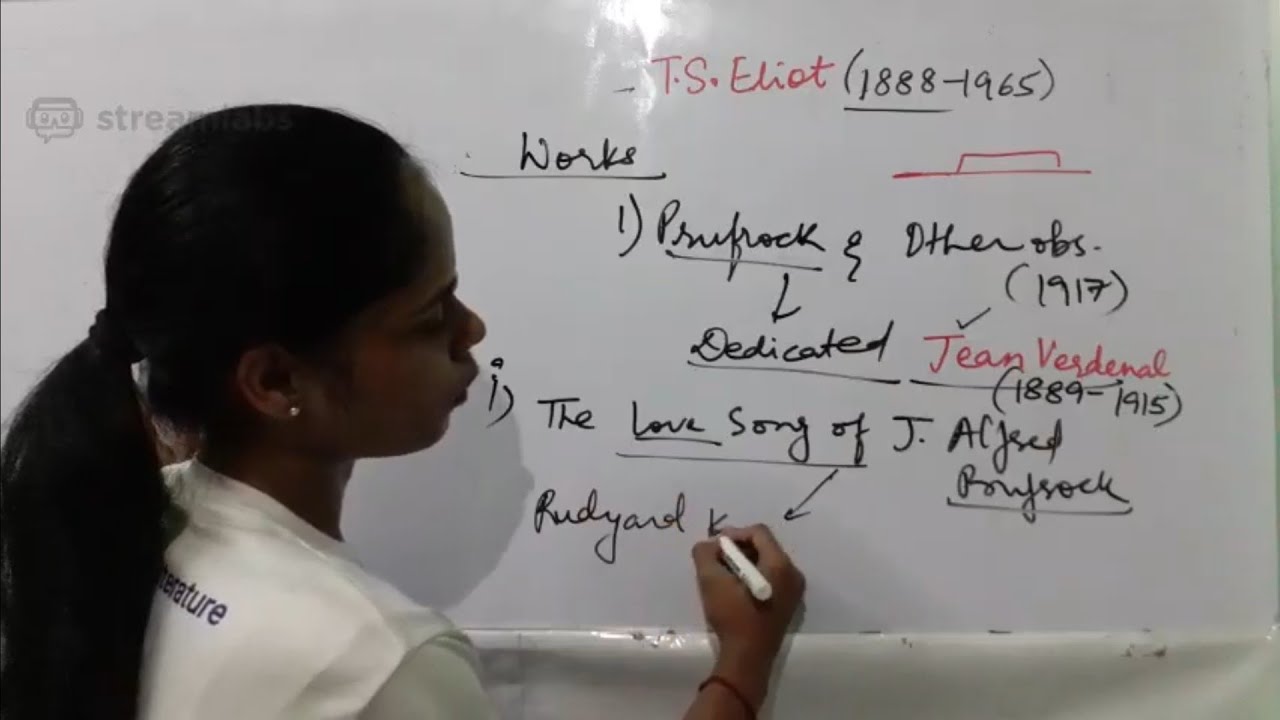 streamlabs
- T.S. Eliot (1888-1965)
Works
1) Prufrock & Other obs.
(1917)
Dedicated Jean Verdenal
(1889-1915)
i) The Love Song of J. Alfred
Prufrock
Rudyard K
terature